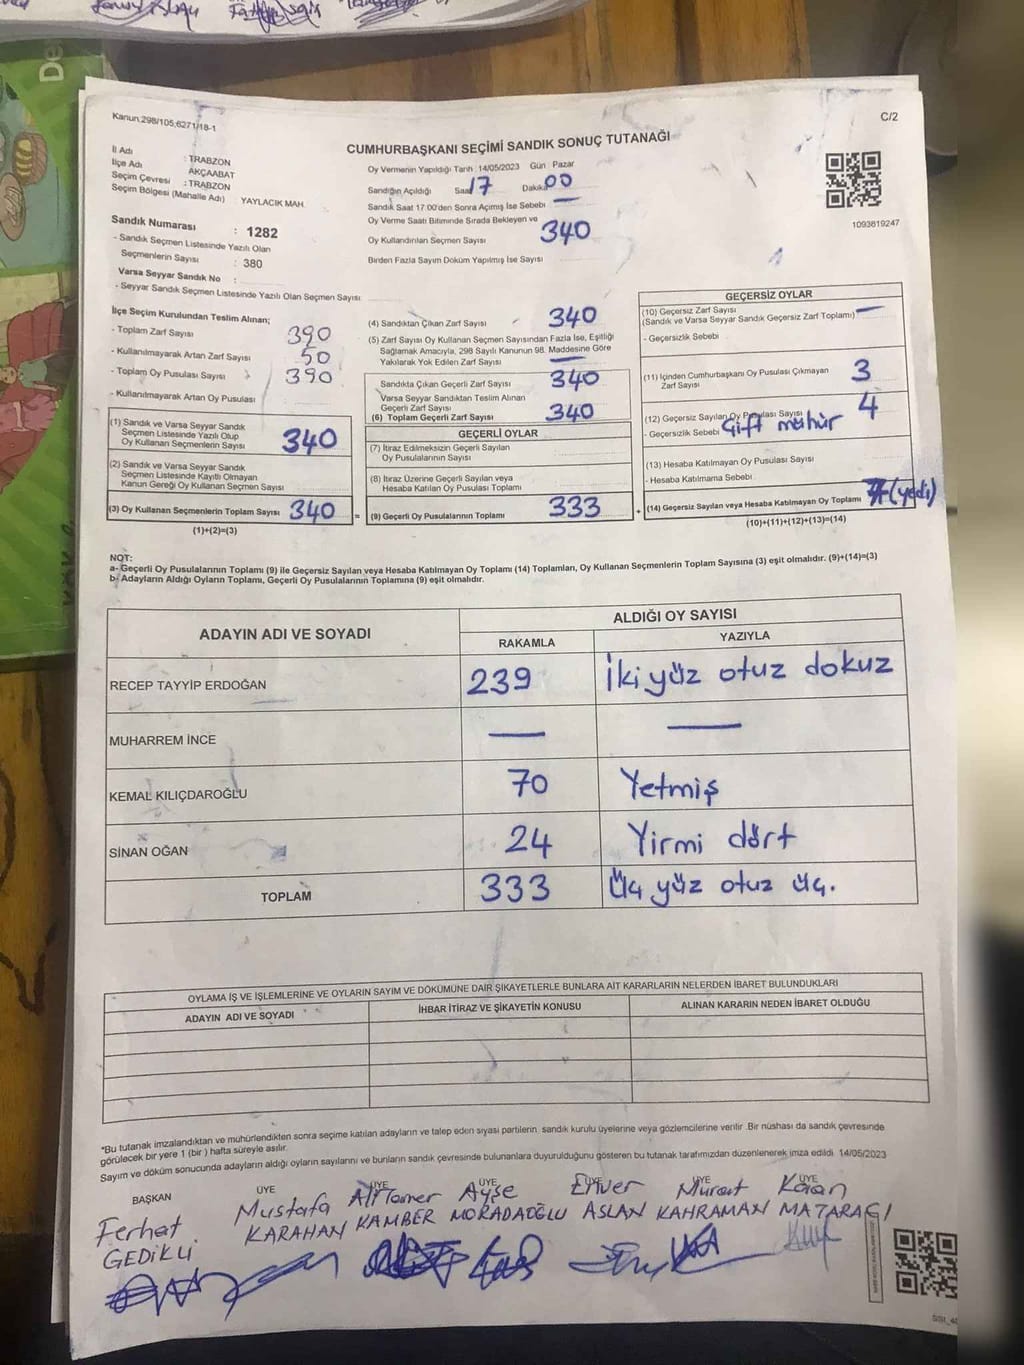 De
Kanun,298/105,6271/18-1
C/2
CUMHURBAŞKANI SEÇİMİ SANDIK SONUÇ TUTANAĞI
İl Adı : TRABZON
İlçe Adı AKÇAABAT
Seçim Çevresi : TRABZON
Seçim Bölgesi (Mahalle Adı) YAYLACIK MAH.
Sandık Numarası : 1282
- Sandık Seçmen Listesinde Yazılı Olan
Seçmenlerin Sayısı : 380
Varsa Seyyar Sandık No :
- Seyyar Sandık Seçmen Listesinde Yazılı Olan Seçmen Sayısı
Oy Vermenin Yapıldığı Tarih : 14/05/2023 Gün Pazar
Sandığın Açıldığı Saat 17 Dakika 00
Sandık Saat 17.00'den Sonra Açılmış İse Sebebi —
Oy Verme Saati Bitiminde Sırada Bekleyen ve
Oy Kullandırılan Seçmen Sayısı 340
Birden Fazla Sayım Döküm Yapılmış İse Sayısı
1093819247
İlçe Seçim Kurulundan Teslim Alınan;
- Toplam Zarf Sayısı 390
- Kullanılmayarak Artan Zarf Sayısı 50
- Toplam Oy Pusulası Sayısı 390
- Kullanılmayarak Artan Oy Pusulası
(1) Sandık ve Varsa Seyyar Sandık
Seçmen Listesinde Yazılı Olup
Oy Kullanan Seçmenlerin Sayısı 340
(2) Sandık ve Varsa Seyyar Sandık
Seçmen Listesinde Kayıtlı Olmayan
Kanun Gereği Oy Kullanan Seçmen Sayısı
(3) Oy Kullanan Seçmenlerin Toplam Sayısı 340 =
(1)+(2)=(3)
(4) Sandıktan Çıkan Zarf Sayısı 340
(5) Zarf Sayısı Oy Kullanan Seçmen Sayısından Fazla İse, Eşitliği
Sağlamak Amacıyla, 298 Sayılı Kanunun 98. Maddesine Göre
Yakılarak Yok Edilen Zarf Sayısı —
Sandıkta Çıkan Geçerli Zarf Sayısı 340
Varsa Seyyar Sandıktan Teslim Alınan
Geçerli Zarf Sayısı
(6) Toplam Geçerli Zarf Sayısı 340
GEÇERLİ OYLAR
(7) İtiraz Edilmeksizin Geçerli Sayılan
Oy Pusulalarının Sayısı
(8) İtiraz Üzerine Geçerli Sayılan veya
Hesaba Katılan Oy Pusulası Toplamı
(9) Geçerli Oy Pusulalarının Toplamı 333 +
GEÇERSİZ OYLAR
(10) Geçersiz Zarf Sayısı —
(Sandık ve Varsa Seyyar Sandık Geçersiz Zarf Toplamı)
- Geçersizlik Sebebi
(11) İçinden Cumhurbaşkanı Oy Pusulası Çıkmayan
Zarf Sayısı 3
(12) Geçersiz Sayılan Oy Pusulası Sayısı 4
- Geçersizlik Sebebi Çift mühür
(13) Hesaba Katılmayan Oy Pusulası Sayısı
- Hesaba Katılmama Sebebi
(14) Geçersiz Sayılan veya Hesaba Katılmayan Oy Toplamı 7 (yedi)
(10)+(11)+(12)+(13)=(14)
NOT:
a- Geçerli Oy Pusulalarının Toplamı (9) ile Geçersiz Sayılan veya Hesaba Katılmayan Oy Toplamı (14) Toplamları, Oy Kullanan Seçmenlerin Toplam Sayısına (3) eşit olmalıdır. (9)+(14)=(3)
b- Adayların Aldığı Oyların Toplamı, Geçerli Oy Pusulalarının Toplamına (9) eşit olmalıdır.
ADAYIN ADI VE SOYADI
ALDIĞI OY SAYISI
RAKAMLA YAZIYLA
RECEP TAYYİP ERDOĞAN 239 İki yüz otuz dokuz
MUHARREM İNCE — —
KEMAL KILIÇDAROĞLU 70 Yetmiş
SİNAN OĞAN 24 Yirmi dört
TOPLAM 333 Üç yüz otuz üç.
OYLAMA İŞ VE İŞLEMLERİNE VE OYLARIN SAYIM VE DÖKÜMÜNE DAİR ŞİKAYETLERLE BUNLARA AİT KARARLARIN NELERDEN İBARET BULUNDUKLARI
ADAYIN ADI VE SOYADI İHBAR İTİRAZ VE ŞİKAYETİN KONUSU ALINAN KARARIN NEDEN İBARET OLDUĞU
*Bu tutanak imzalandıktan ve mühürlendikten sonra seçime katılan adayların ve talep eden siyasi partilerin sandık kurulu üyelerine veya gözlemcilerine verilir. Bir nüshası da sandık çevresinde
görülecek bir yere 1 (bir) hafta süreyle asılır.
Sayım ve döküm sonucunda adayların aldığı oyların sayılarını ve bunların sandık çevresinde bulunanlara duyurulduğunu gösteren bu tutanak tarafımızdan düzenlenerek imza edildi. 14/05/2023
BAŞKAN ÜYE ÜYE ÜYE ÜYE ÜYE
Ferhat Mustafa Ali Tamer Ayşe Enver Murat Kaan
GEDİKLİ KARAHAN KAMBER MORADAOĞLU ASLAN KAHRAMAN MATARACI